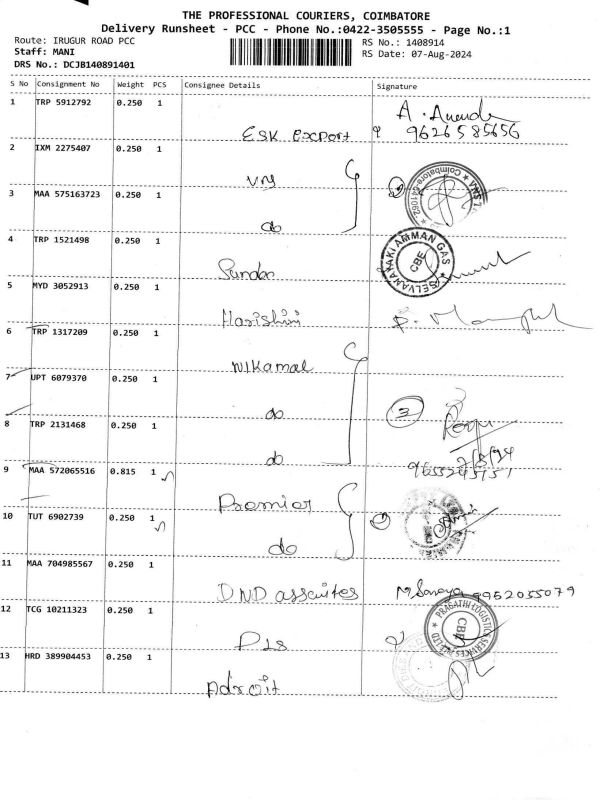 THE PROFESSIONAL COURIERS, COIMBATORE
Delivery Runsheet - PCC - Phone No.:0422-3505555 - Page No.:1
Route: IRUGUR ROAD PCC
RS No.: 1408914
Staff: MANI
RS Date: 07-Aug-2024
DRS No.: DCJB140891401
S No Consignment No Weight PCS Consignee Details Signature
1 TRP 5912792 0.250 1
ESK Export
9626585656
2 IXM 2275407 0.250 1
3 MAA 575163723 0.250 1
do
4 TRP 1521498 0.250 1
SELVANAYAKI AMMAN GAS
CBE
5 MYD 3052913 0.250 1
Harishini
6 TRP 1317209 0.250 1
Nilkamal
7 UPT 6079370 0.250 1
do
3
8 TRP 2131468 0.250 1
do
9 MAA 572065516 0.815 1
Premier
10 TUT 6902739 0.250 1
do
11 MAA 704985567 0.250 1
DND
9952055079
12 TCG 10211323 0.250 1
PRAGATHI LOGISTIC SERVICES PVT LTD
CBE
PLS
13 HRD 389904453 0.250 1
Adroit